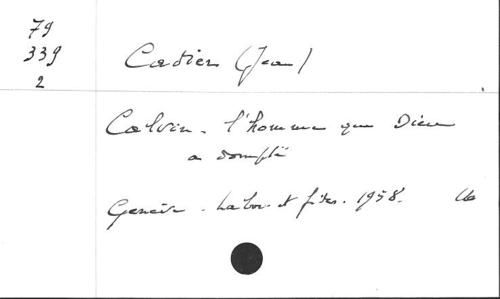 79
339
2
Cadier (Jean)
Calvin. l'homme que Dieu
a dompté
Genève. Labor et fides. 1958.